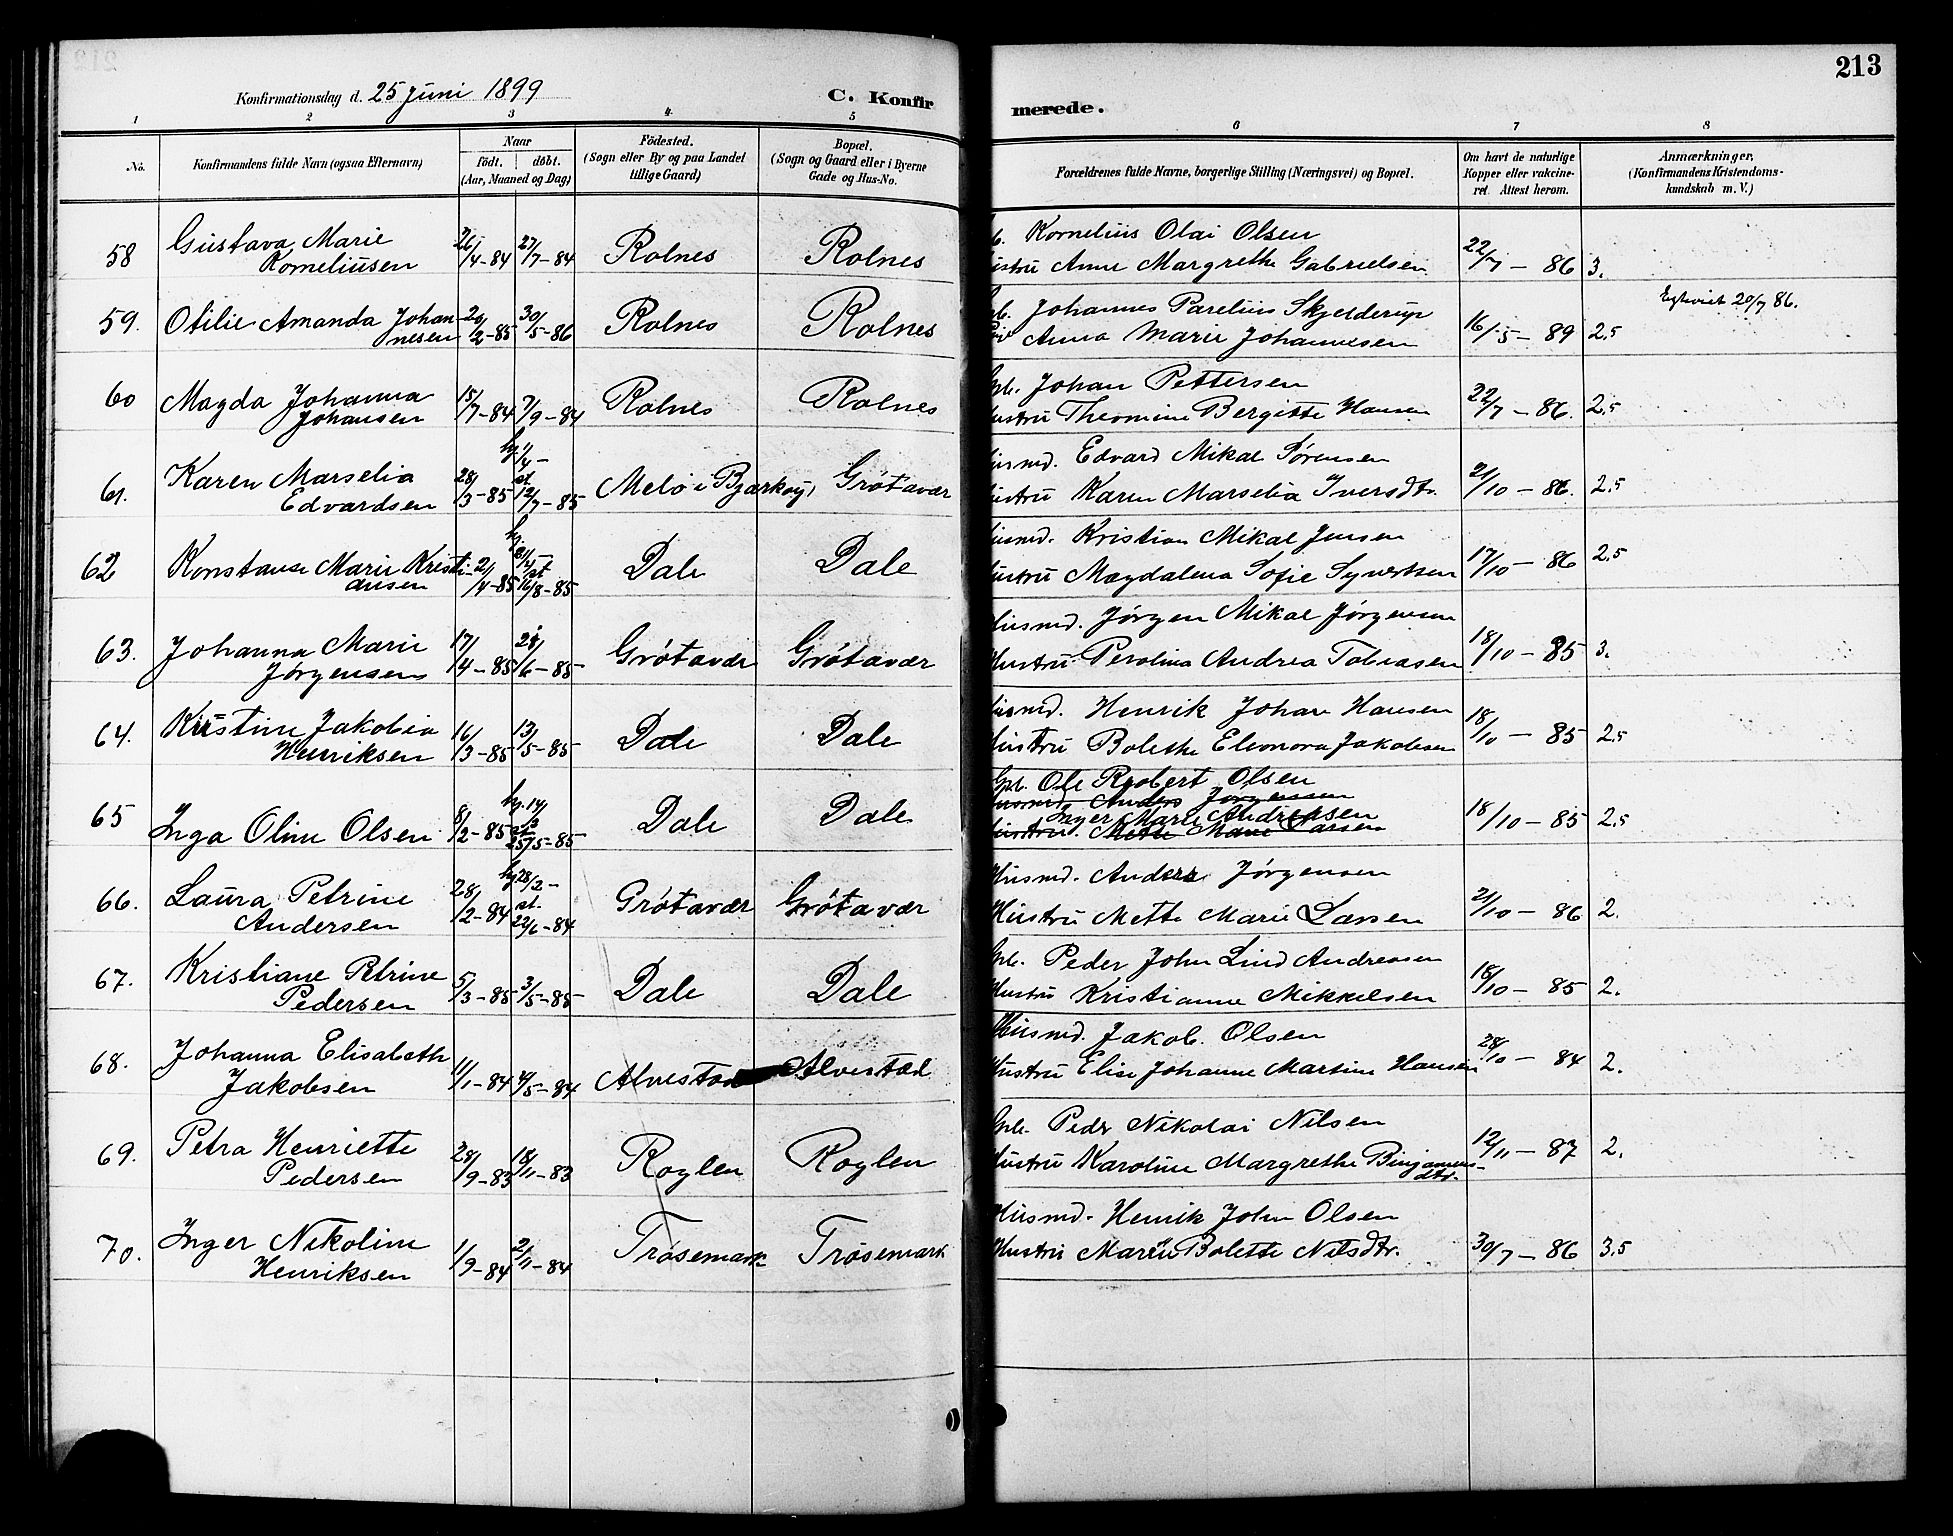 213
Konfirmationsdag d. 25 Juni 1899
C. Konfirmerede.
1 2 3 4 5 6 7 8
No. Konfirmandens fulde Navn (ogsaa Efternavn) Naar født. døbt. (Aar, Maaned og Dag) Födested. (Sogn eller By og paa Landet tillige Gaard) Bopæl. (Sogn og Gaard eller i Byerne Gade og Hus-No. Forældrenes fulde Navne, borgerlige Stilling (Næringsvei) og Bopæl. Om havt de naturlige Kopper eller vakcineret. Attest herom. Anmærkninger, (Konfirmandens Kristendomskundskab m. V.)
58 Gustava Marie Korneliusen 26/4-84 27/7-84 Rolnes Rolnes Kornelius Olai Olsen
Hustru Anne Margrethe Gabrielsen 22/7 - 86 3.
59. Otilie Amanda Johannesen 20/2-85 30/5-86 Rolnes Rolnes Johannes Parelius Skjelderup
Anna Marie Johannesen 16/5 - 89 2.5 Egteviet 20/7 86.
60 Magda Johanna Johansen 15/7-84 7/9-84 Rolnes Rolnes Gb. Johan Pettersen
Hustru Theomine Bergitte Hansen 22/7 - 86. 2.5
61. Karen Marselia Edvardsen 28/3-85 hj. 1/4 - st. 12/7-85 Melö i Bjarköy Grötavær Husmd. Edvard Mikal Sørensen
Hustru Karen Marselia Iversdtr. 21/10 - 86. 2.5
62 Konstanse Marie Kristiansen 2/4-85 hj. 21/4- st 16/8-85 Dale Dale Husmd. Kristian Mikal Jensen
Hustru Magdalena Sofie Syvertsen 17/10 - 86 2.5
63. Johanna Marie Jørgensen 17/4-85 28/6-85 Grötavær Grötavær Husmd. Jørgen Mikal Jørgensen
Hustru Perolina Andrea Tobiasen 18/10 - 85 3.
64. Kristine Jakobia Henriksen 16/3-85 13/5-85 Dale Dale Husmd. Henrik Johan Hansen
Hustru Bolethe Eleonora Jakobsen 18/10 - 85 2.5
65 Inga Oline Olsen 8/2-85 hj. 14/3 st 25/5-85 Dale Dale Gb. Ole Robert Olsen
Husmd. Anders Jørgensen
Inger Marie Andreasen
Hustru Mette Marie Larsen 18/10 - 85 2.5
66. Laura Petrine Andersen 28/2-84 hj 28/2- st. 22/6-84 Grötavær Grötavær Husmd. Anders Jørgensen
Hustru Mette Marie Larsen 21/10 - 86 2.
67. Kristiane Petrine Pedersen 5/3-85 3/5-85 Dale Dale Gb. Peder John Lind Andreasen
Hustru Kristianne Mikkelsen 18/10 - 85 2.
68. Johanna Elisabeth Jakobsen 11/1-84 4/5-84 Alvestad Alvestad Husmd. Jakob. Olsen
Hustru Elise Johanne Martine Hansen 28/10 - 84 2.
69. Petra Henriette Pedersen 28/9-83 18/11-83 Roglen Roglen Gb. Peder Nikolai Nilsen
Hustru Karoline Margrethe Binjaminsdtr. 12/11 - 87 2.
70. Inger Nikoline Henriksen 1/9-84 2/11-84 Trösemark Trösemark Husmd. Henrik John Olsen
Hustru Maren Bolette Nilsdtr. 30/7 - 86 3.5